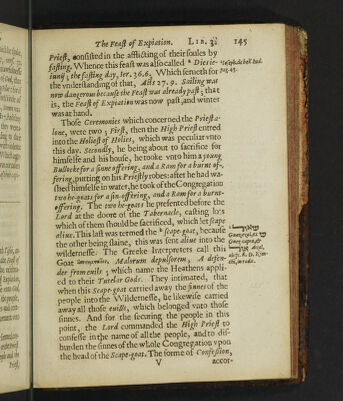 The Feast of Expiation. LIB. 3. 145
Priest, consisted in the afflicting of their soules by
fasting. Whence this feast was also called * Dies ie-
iunij; the fasting day, Ier. 36.6. Which serueth for
the vnderstanding of that, Acts 27.9. Sailing was
now dangerous because the Feast was already past; that
is, the Feast of Expiation was now past, and winter
was at hand.
Those Ceremonies which concerned the Priest a-
lone, were two; First, then the High Priest entred
into the Holiest of Holies, which was peculiar vnto
this day. Secondly, he being about to sacrifice for
himselfe and his house, he tooke vnto him a young
Bullocke for a sinne offering, and a Ram for a burnt of-
fering, putting on his Priestly robes: after he had wa-
shed himselfe in water, he took of the Congregation
two he-goats for a sin-offering, and a Ram for a burnt-
offering. The two he-goats he presented before the
Lord at the doore of the Tabernacle, casting lots
which of them should be sacrificed, which let scape
aliue. This last was termed the b scape-goat, because
the other being slaine, this was sent aliue into the
wildernesse. The Greeke Interpreters call this
Goat Malorum depulsorem, A defen-
der from euils; which name the Heathens appli-
ed to their Tutelar Gods. They intimated, that
when this Scape-goat carried away the sinnes of the
people into the Wildernesse, he likewise carried
away all those euills, which belonged vnto those
sinnes. And for the securing the people in this
point, the Lord commanded the High Priest to
confesse in the name of all the people, and to dis-
burden the sinnes of the whole Congregation vpon
the head of the Scape-goat. The forme of Confession,
V accor-